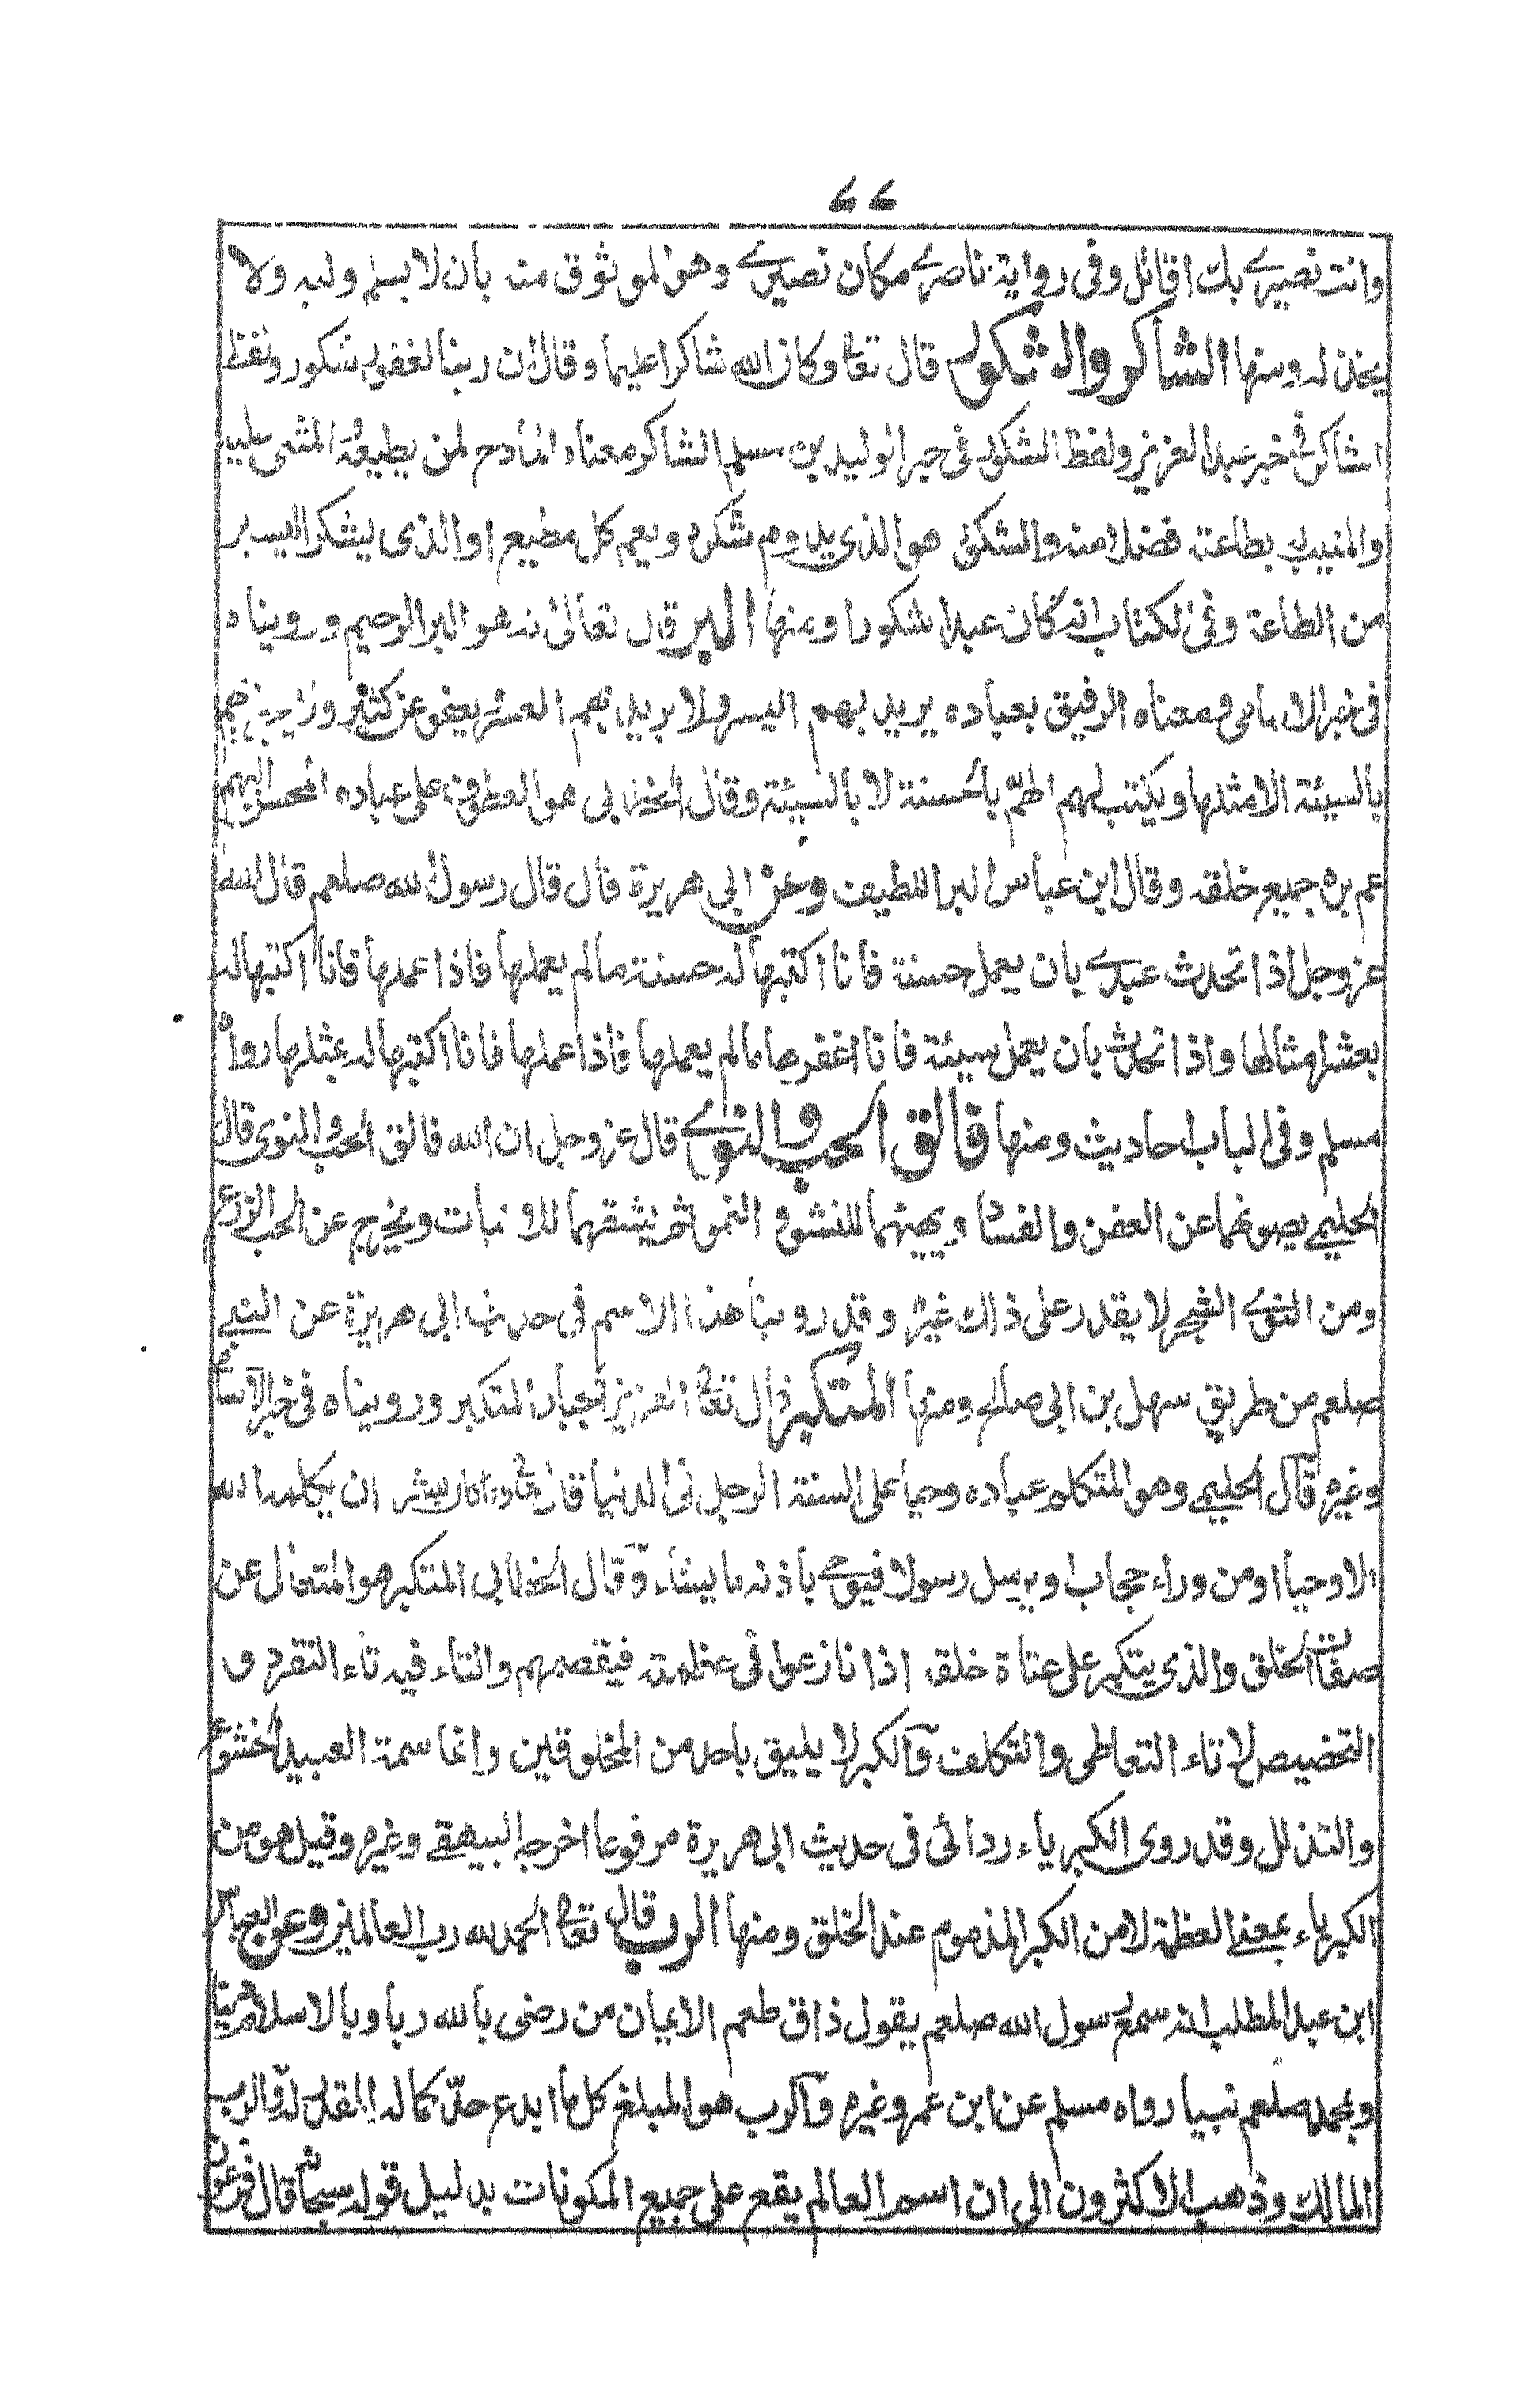 ٦٦
وانت نصيري بك اقاتل وفى رواية ناصري مكان نصيري وهو الموثوق منه بان لا يسلم وليه ولا
يخذ له ومنها الشاكر والشكور قال تعالى وكان الله شاكرا عليما وقال ان ربنا لغفور شكور ولفظ
الشاكر فى خبر عبد العزيز ولفظ الشكور فى خبر الوليد بن مسلم الشاكر معناه المادح لمن يطيعه المثنى عليه
والمثيب له بطاعته فضلا منه والشكور هو الذى يدوم شكره ويعم كل مطيع او الذى يشكر اليسير
من الطاعة وفى الكتاب انه كان عبدا شكورا ومنها البر قال تعالى انه هو البر الرحيم ورويناه
فى خبر الاسامى ومعناه الرفيق بعباده يريد بهم اليسر ولا يريد بهم العسر يعفو عن كثير
بالسيئة الا مثلها ويكتب لهم الهم بالحسنة لا بالسيئة وقال الخطابى هو العطوف على عباده المحسن اليهم
عم بره جميع خلقه وقال ابن عباس البر اللطيف وعن ابى هريرة قال قال رسول الله صلعم قال الله
عز وجل اذا تحدث عبدي بان يعمل حسنة فانا اكتبها له حسنة مالم يعملها فاذا عملها فانا اكتبها له
بعشر امثالها واذا تحدث بان يعمل سيئة فانا اغفرها مالم يعملها فاذا عملها فانا اكتبها له بمثلها رواه
مسلم وفى الباب احاديث ومنها فالق الحب والنوى قال عز وجل ان الله فالق الحب والنوى قال
الحليمي يصونهما عن العفن والفساد ويهيئهما للنشو والنمو ثم يشقهما للانبات ويخرج عن الحب الزرع
ومن النوى الشجر لا يقدر على ذلك غيره وقد روينا هذا الاسم فى حديث ابى هريرة عن النبي
صلعم من طريق سهل بن ابى صالح ومنها المتكبر قال تعالى العزيز الجبار المتكبر ورويناه فى خبر الاسامى
وغيره قال الحليمي وهو المتكلم عباده وحيا على السنة الرسل فى الدنيا قال تعالى وما كان لبشر ان يكلمه الله
الا وحيا او من وراء حجاب او يرسل رسولا فيوحي باذنه ما يشاء وقال الخطابى المتكبر هو المتعال عن
صفات الخلق والذى يتكبر على عتاة خلقه اذا نازعوا فى عظمته فيقصمهم والتاء فيه تاء التفرد و
التخصيص لا تاء التعاطى والتكلف والكبر لا يليق باحد من المخلوقين وانما سمة العبيد الخشوع
والتذلل وقد روى الكبرياء ردائى فى حديث ابى هريرة مرفوعا اخرجه البيهقي وغيره وقيل هو من
الكبرياء بمعنى العظمة لا من الكبر المذموم عند الخلق ومنها الرب قال تعالى الحمد لله رب العالمين وعن العباس
ابن عبد المطلب انه سمع رسول الله صلعم يقول ذاق طعم الايمان من رضى بالله ربا وبالاسلام دينا
وبمحمد صلعم نبيا رواه مسلم عن ابن عمر وغيره والرب هو المبلغ كل ما ابدع حد كماله المقدر له والرب
المالك وذهب الاكثرون الى ان اسم العالم يقع على جميع المكونات بدليل قوله سبحانه قال فرعون